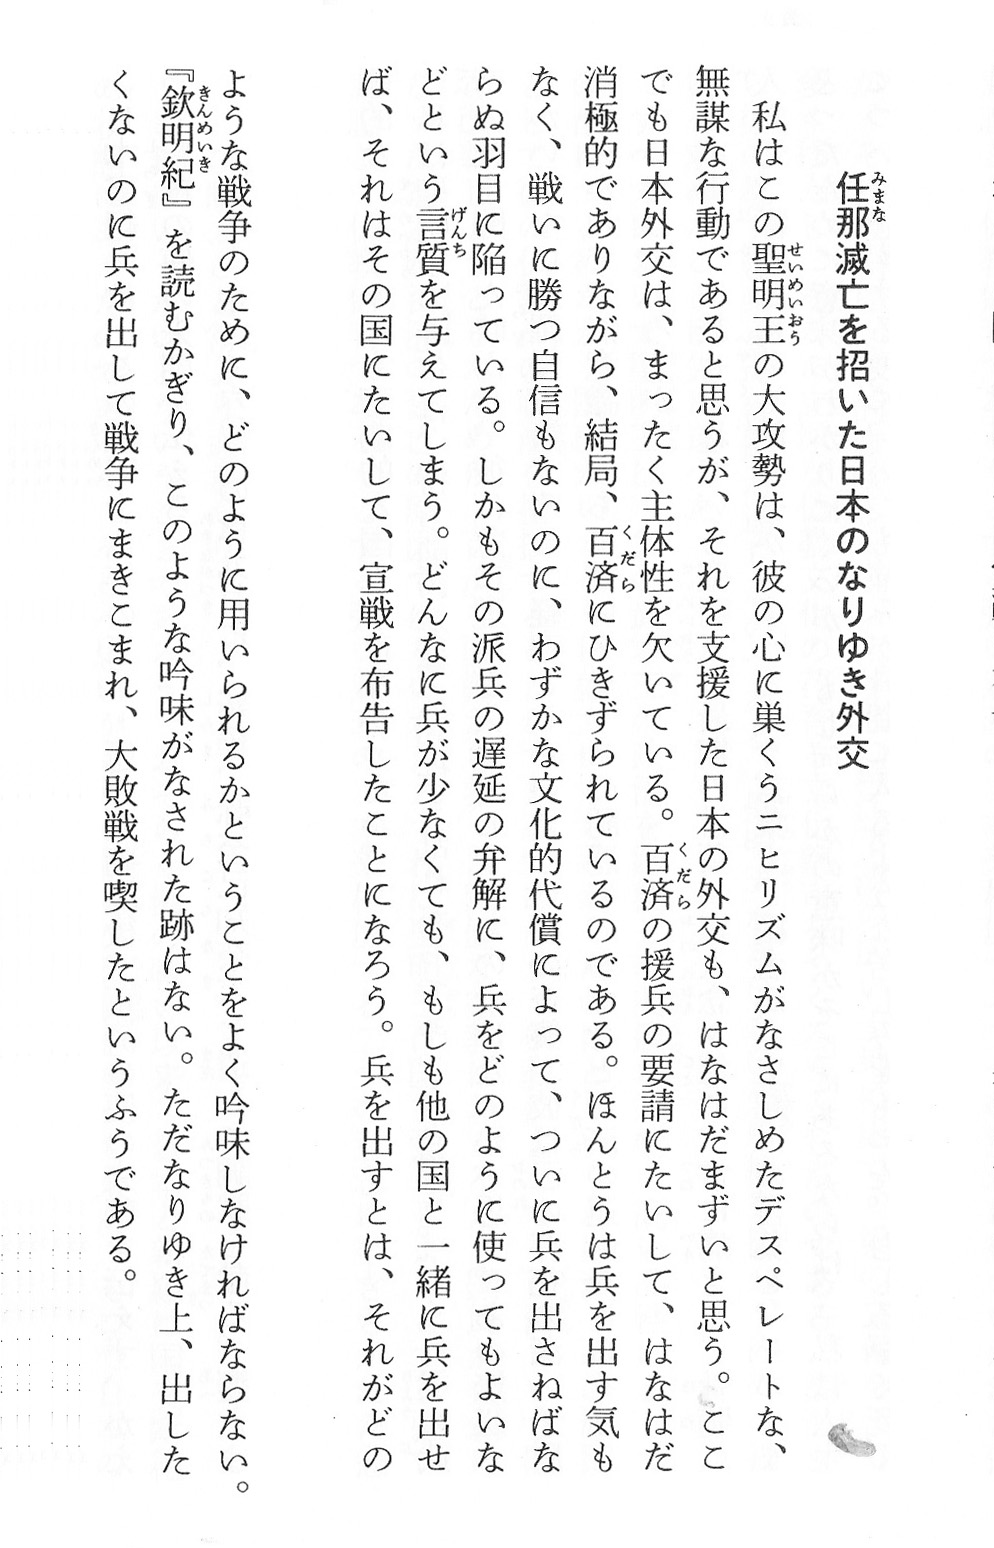 任那滅亡を招いた日本のなりゆき外交
私はこの聖明王の大攻勢は、彼の心に巣くうニヒリズムがなさしめたデスペレートな、
無謀な行動であると思うが、それを支援した日本の外交も、はなはだまずいと思う。ここ
でも日本外交は、まったく主体性を欠いている。百済の援兵の要請にたいして、はなはだ
消極的でありながら、結局、百済にひきずられているのである。ほんとうは兵を出す気も
なく、戦いに勝つ自信もないのに、わずかな文化的代償によって、ついに兵を出さねばな
らぬ羽目に陥っている。しかもその派兵の遅延の弁解に、兵をどのように使ってもよいな
どという言質を与えてしまう。どんなに兵が少なくても、もしも他の国と一緒に兵を出せ
ば、それはその国にたいして、宣戦を布告したことになろう。兵を出すとは、それがどの
ような戦争のために、どのように用いられるかということをよく吟味しなければならない。
『欽明紀』を読むかぎり、このような吟味がなされた跡はない。ただなりゆき上、出した
くないのに兵を出して戦争にまきこまれ、大敗戦を喫したというふうである。